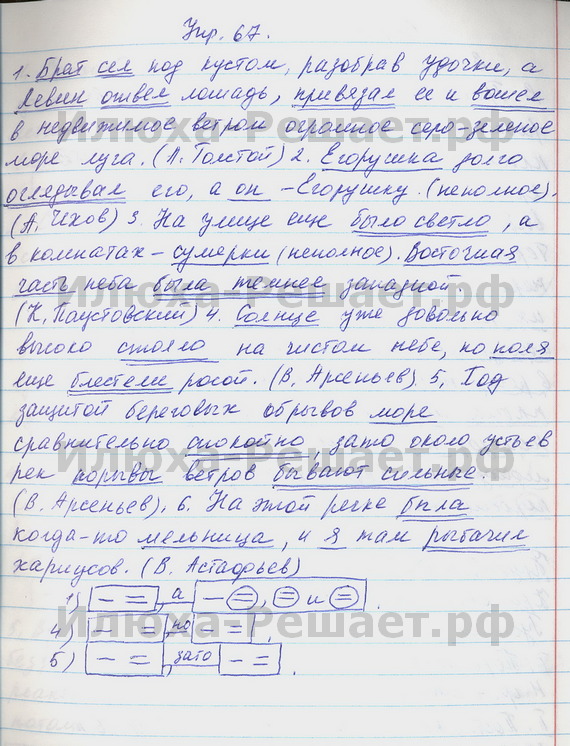 Упр. 67.
1. Брат сел под кустом, разобрав удочки, а
Левин отвел лошадь, привязал ее и вошел
в недвижимое ветром огромное серо-зеленое
море луга. (Л. Толстой) 2. Егорушка долго
оглядывал его, а он - Егорушку. (неполное).
(А. Чехов) 3. На улице еще было светло, а
в комнатах - сумерки (неполное). Восточная
часть неба была темнее западной.
(К. Паустовский) 4. Солнце уже довольно
высоко стояло на чистом небе, но поля
еще блестели росой. (В. Арсеньев) 5. Год
защитой береговых обрывов море
сравнительно спокойно, зато около устьев
рек порывы ветров бывают сильнее.
(В. Арсеньев). 6. На этой речке была
когда-то мельница, и я там рыбачил
хариусов. (В. Астафьев)
1) [- =], а [- =, = и =].
4) [- =], но [- =].
5) [- =], зато [- =].
Илюха-Решает.рф
Илюха-Решает.рф
Илюха-Решает.рф
Илюха-Решает.рф